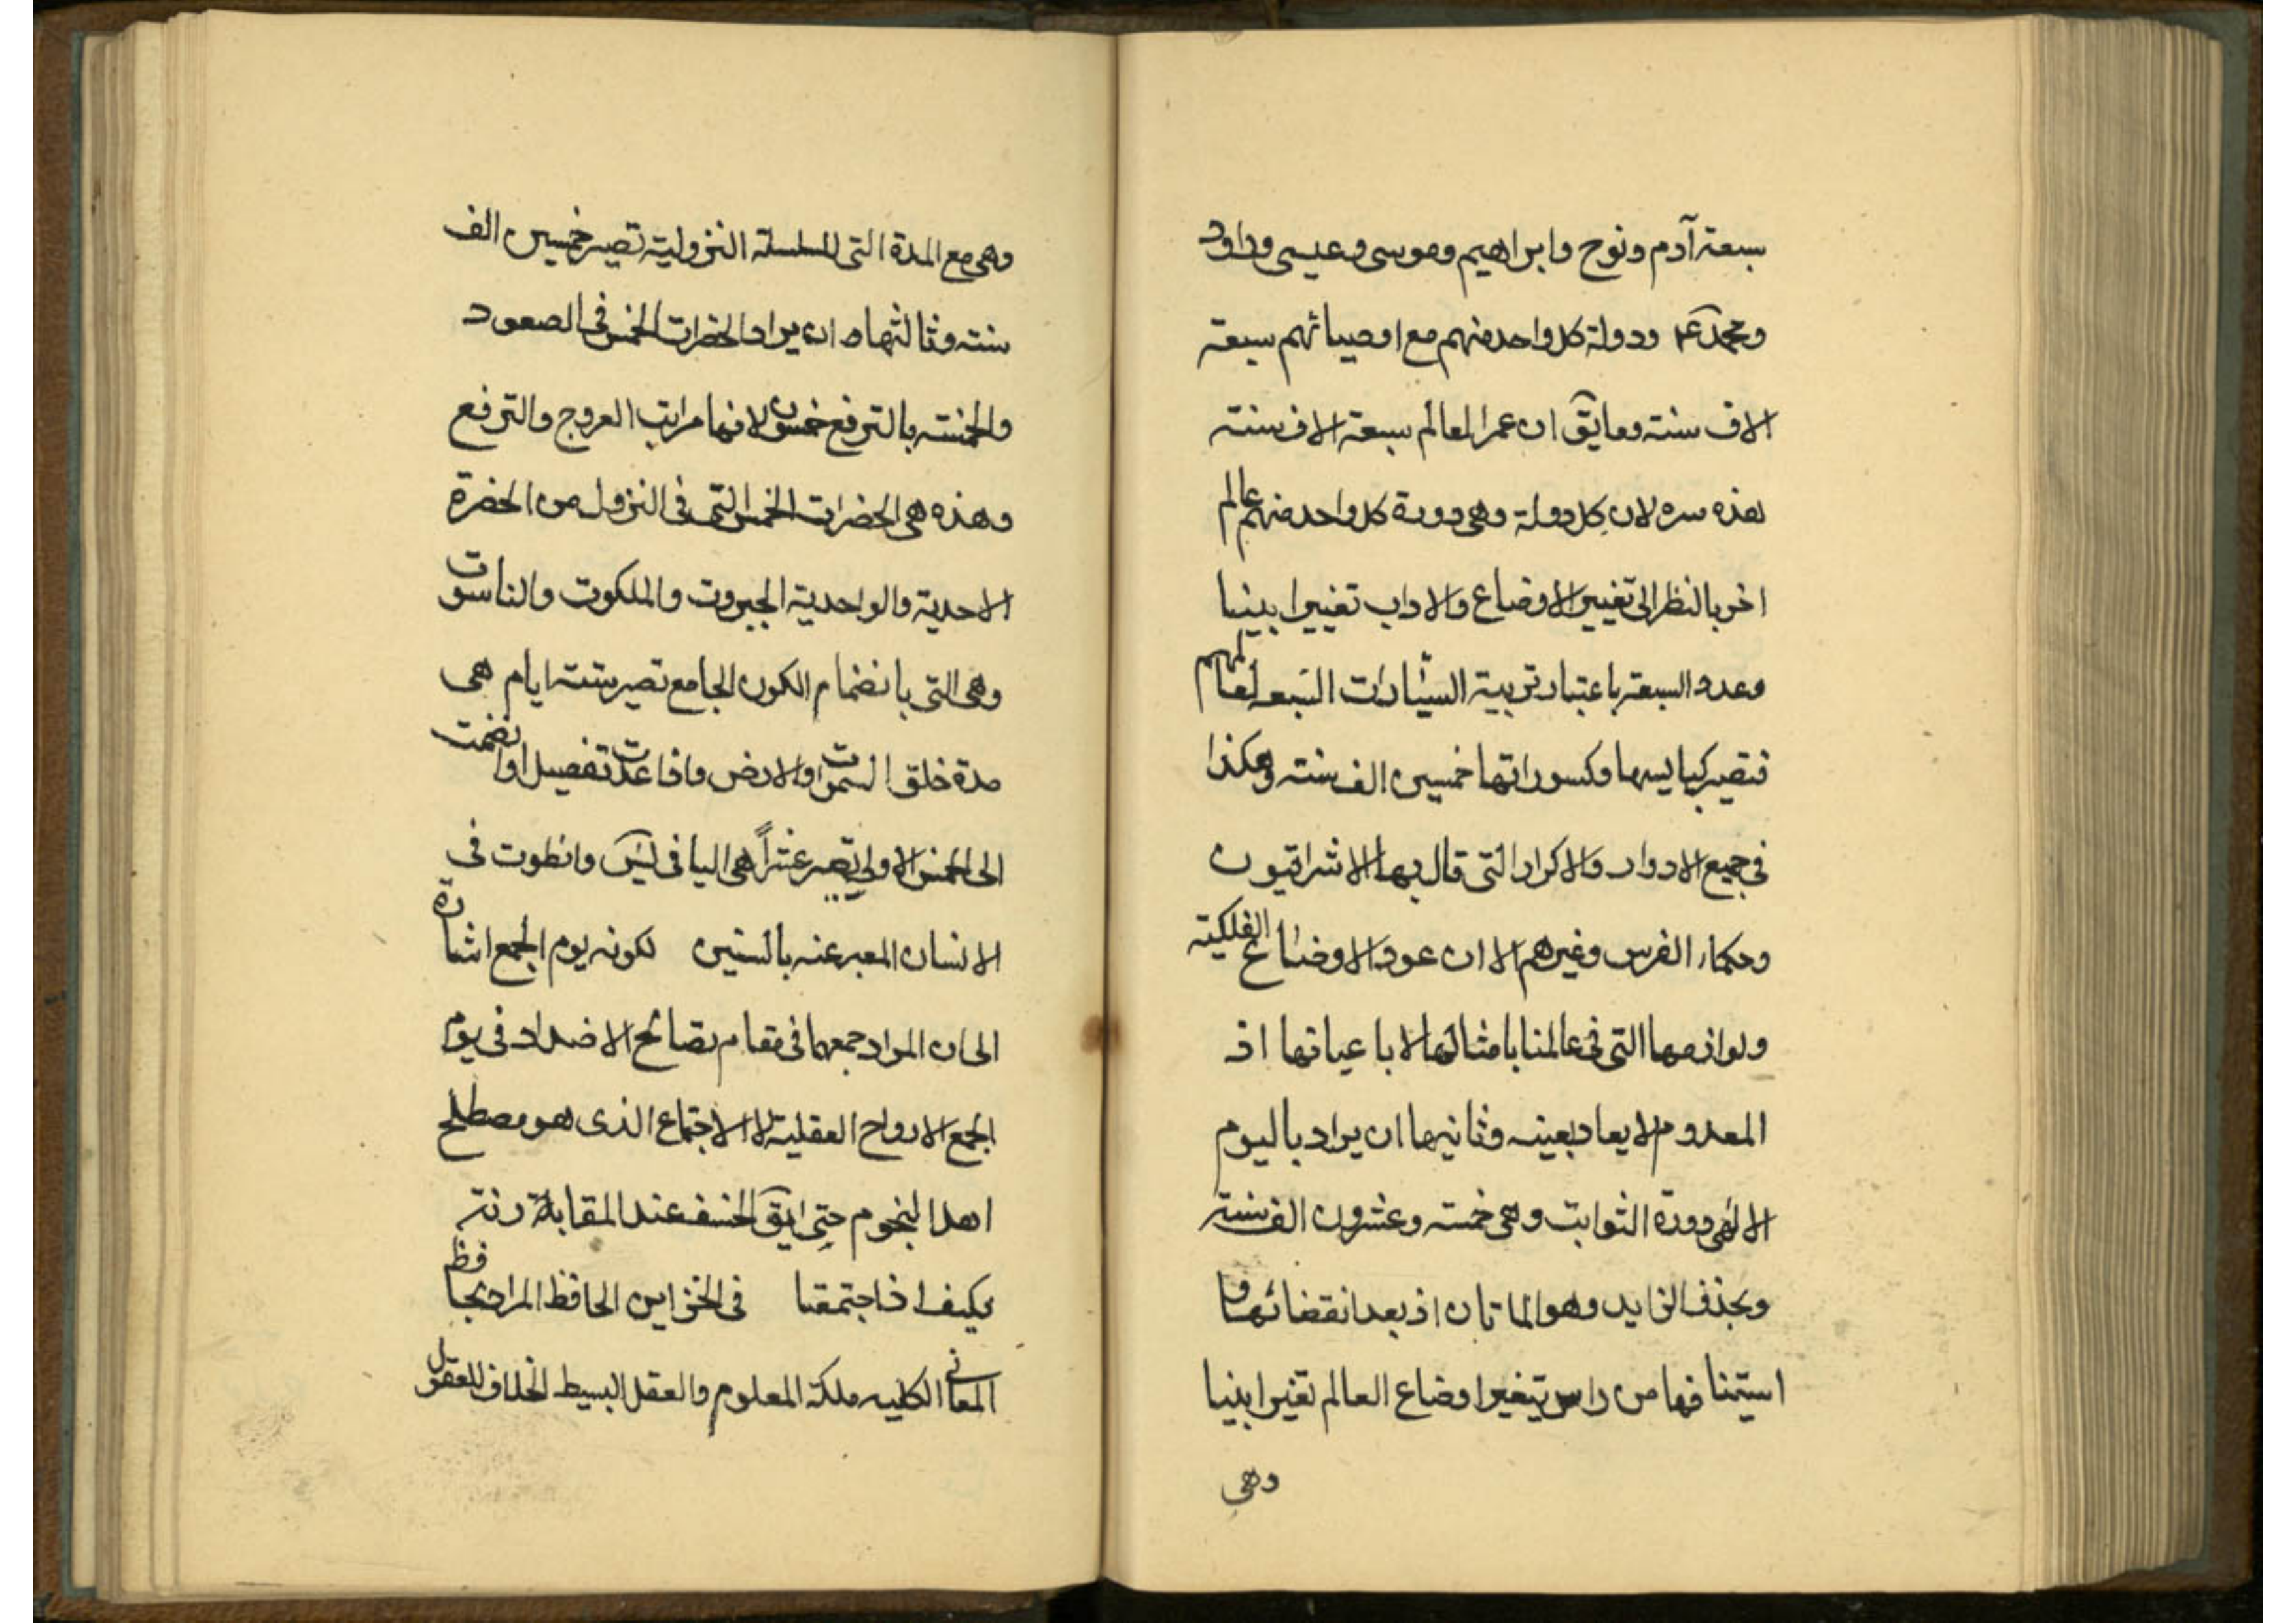 سبعة آدم ونوح وابراهيم وموسى وعيسى وداود
ومحمد ودولة كل واحد منهم مع اوصيائهم سبعة
الاف سنة وما يق ان عمر العالم سبعة الاف سنة
هذه سره لان كل دولة وهى دورة كل واحد منهم عالم
اخر بالنظر الى تغيير الاوضاع والاداب تغييرا بينا
وعدد السبعة باعتبار تربية السيارات السبعه لعالمهم
فتصير كبايسها وكسوراتها خمسين الف سنته وهكذا
فى جميع الادوار والاكرار التى قال بها الاشراقيون
وحكماء الفرس وغيرهم الا ان عود الاوضاع الفلكية
ولوازمها التى فى عالمنا بامثالها لا باعيانها اذ
المعدوم لا يعاد بعينه وثانيها ان يراد باليوم
الالهى دورة الثوابت وهى خمسة وعشرون الف سنة
وبحذف الزايد وهو الماتان اذ بعد انقضائها و
استينافها من راس يتغير اوضاع العالم تغيرا بينا
وهى
وهى مع المدة التى للسلسلة النزولية تصير خمسين الف
سنته وثالثها ان يراد الحضرات الخمس فى الصعود
والخمسة بالترفع خمسون لانها مراتب العروج والترفع
وهذه هى الحضرات الخمس التى فى النزول من الحضرة
الاحدية والواحدية الجبروت والملكوت والناسوت
وهى التى بانضمام الكون الجامع تصير ستة ايام هى
مدة خلق السموات والارض واذا عدت تفصيل اوانضمت
الى الخمس الاولى تصير عشراً هى اليا فى يس وانطوت فى
الانسان المعبر عنه بالسنين لكونه يوم الجمع اشارة
الى ان المراد جمعها فى مقام تصالح الاضداد فى يوم
الجمع الارواح العقلية لا الاجتماع الذى هو مصطلح
اهل النجوم حتى ايق الخسف عند المقابلة
فكيف اذا اجتمعتا فى الخزاين الحافظ المراد بحافظ
المعانى الكليه ملكة المعلوم والعقل البسيط الخلاق للعقول